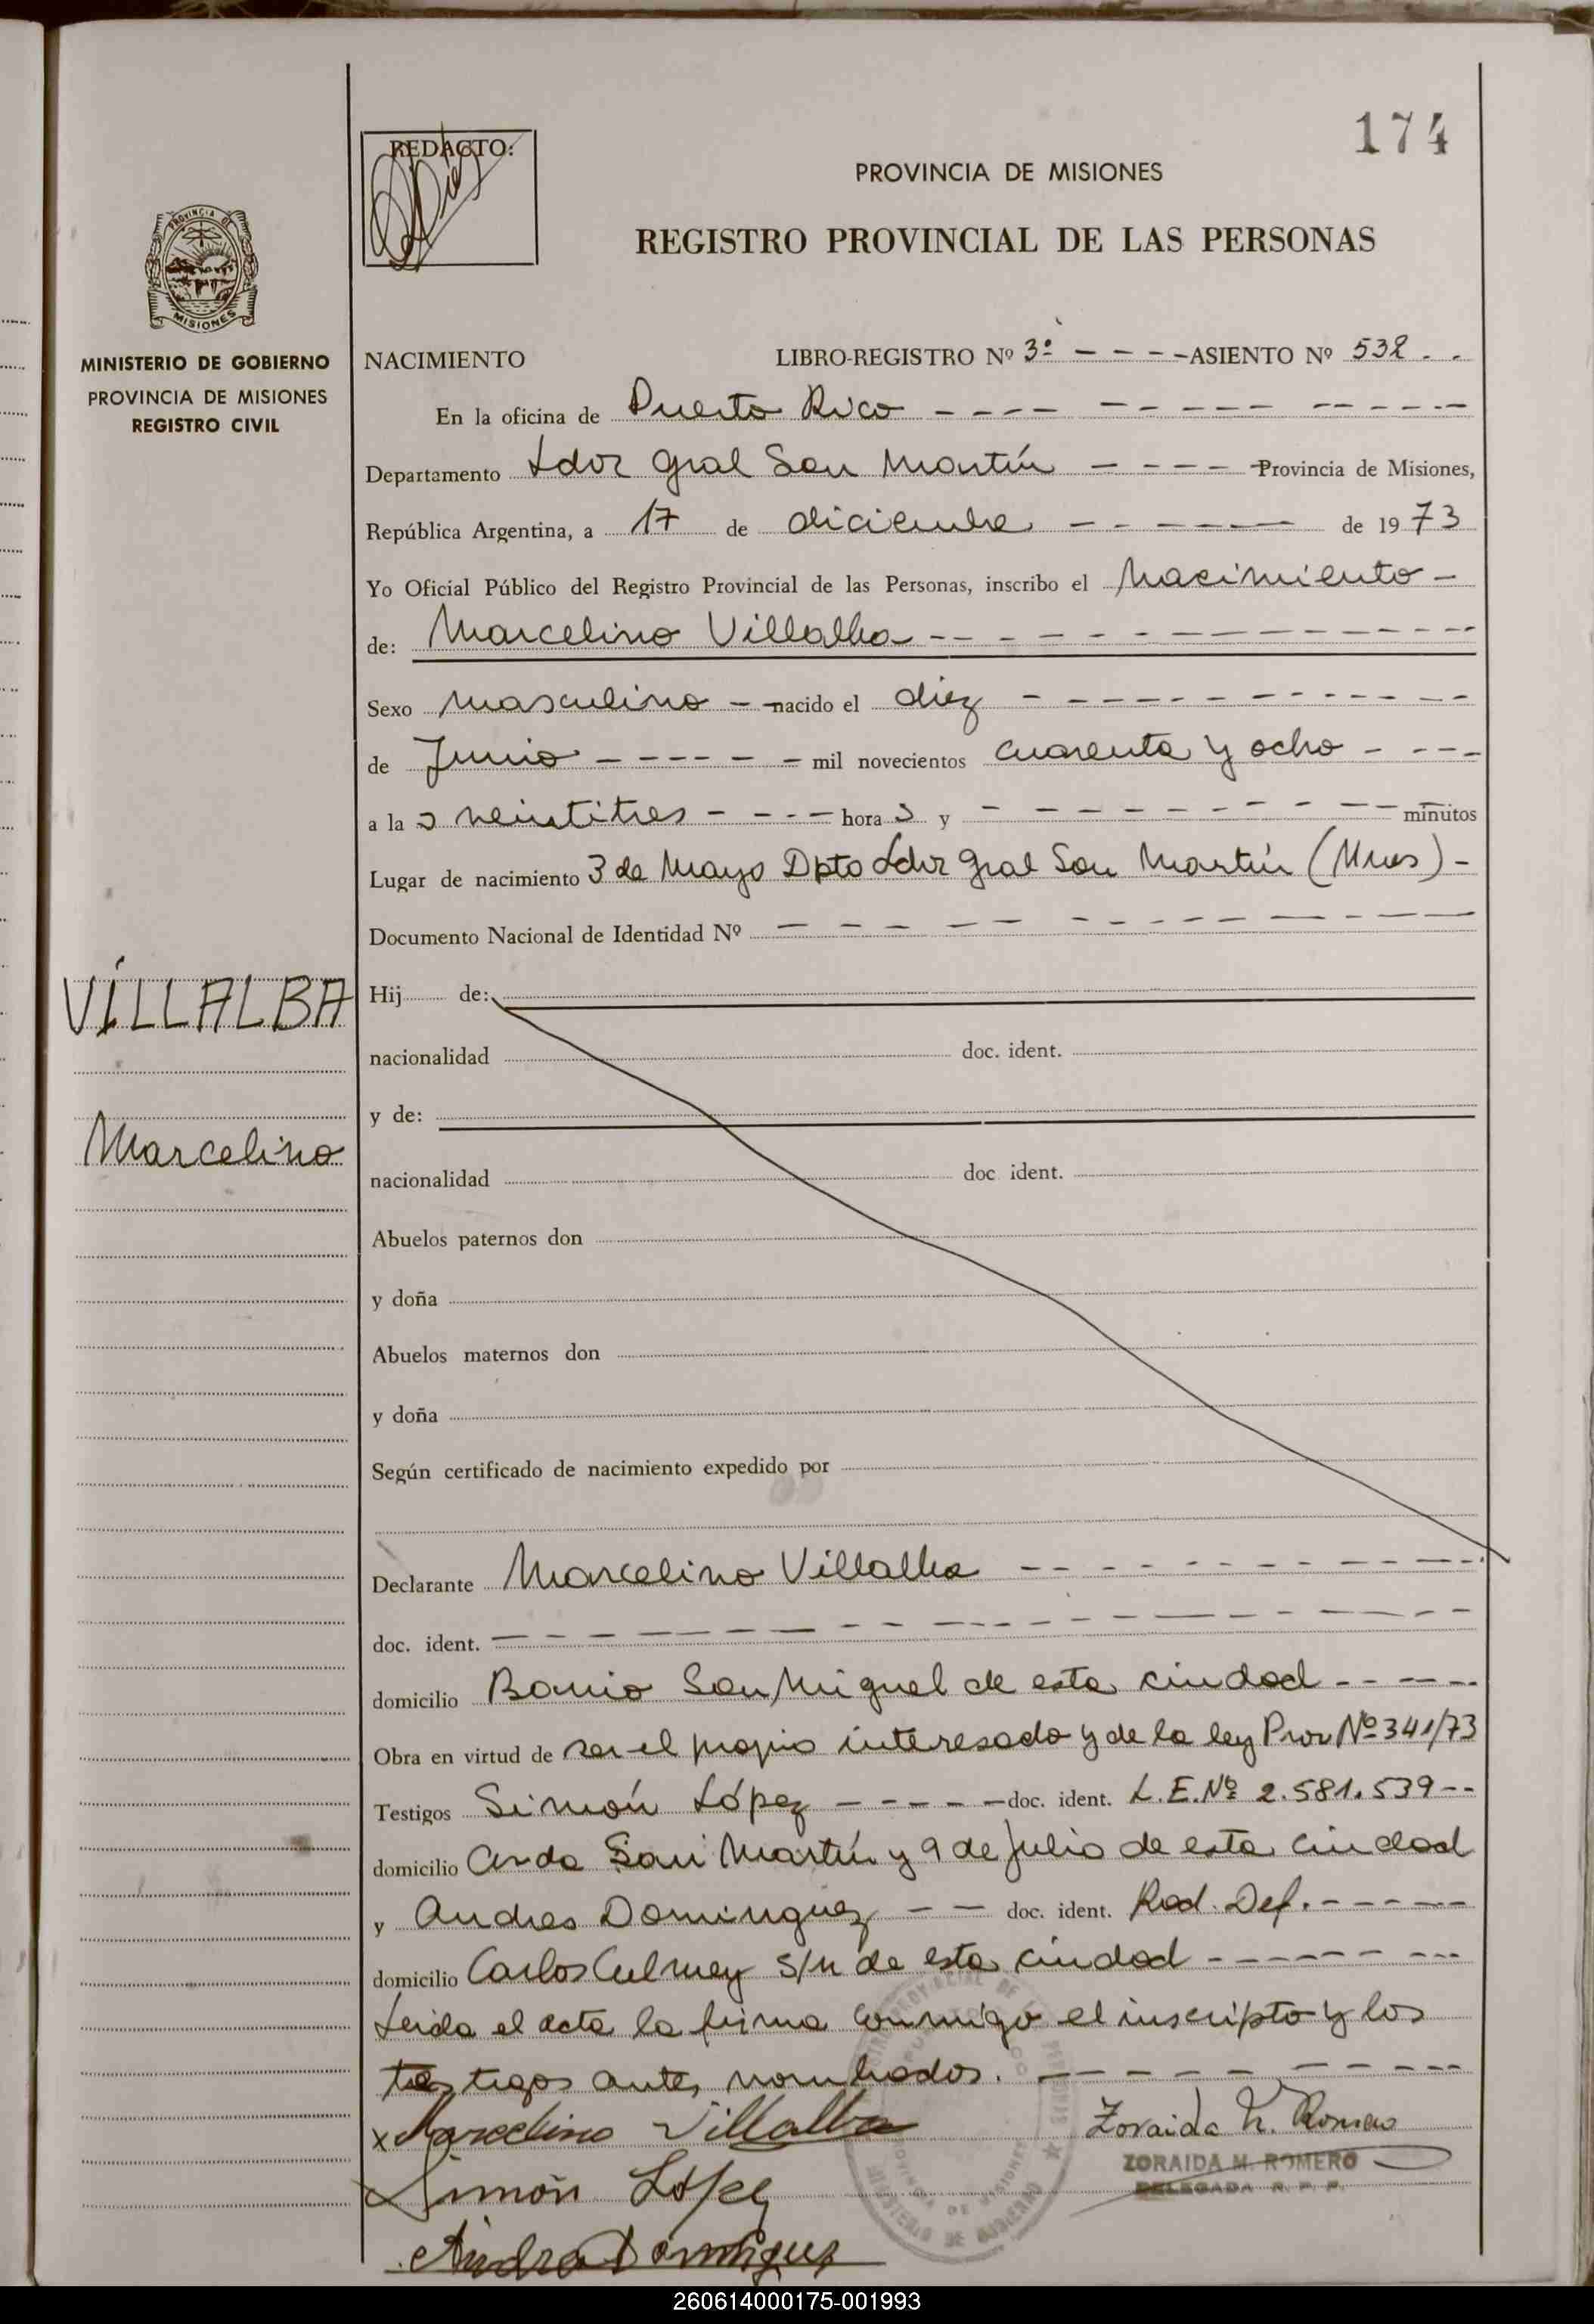 174
REDACTO:
PROVINCIA DE MISIONES
REGISTRO PROVINCIAL DE LAS PERSONAS
PROVINCIA DE
MISIONES
MINISTERIO DE GOBIERNO
PROVINCIA DE MISIONES
REGISTRO CIVIL
NACIMIENTO LIBRO-REGISTRO Nº 3º - - - - ASIENTO Nº 532 - -
En la oficina de Puerto Rico - - - - - - - - - - - - - -
Departamento Ldor Gral San Martín - - - - Provincia de Misiones,
República Argentina, a 17 de diciembre - - - - - - - de 1973
Yo Oficial Público del Registro Provincial de las Personas, inscribo el Nacimiento -
de: Marcelino Villalba - - - - - - - - - - - - - - -
Sexo masculino - - nacido el diez - - - - - - - - - - - -
de Junio - - - - - - mil novecientos cuarenta y ocho - - - -
a las veintitres - - - - horas y - - - - - - - - - - minutos
Lugar de nacimiento 3 de Mayo Dpto Ldor Gral San Martín (Mnes) -
Documento Nacional de Identidad Nº - - - - - - - - - - - - -
VILLALBA
Marcelino
Hij de:
nacionalidad doc. ident.
y de:
nacionalidad doc. ident.
Abuelos paternos don
y doña
Abuelos maternos don
y doña
Según certificado de nacimiento expedido por
Declarante Marcelino Villalba - - - - - - - - - - - -
doc. ident. - - - - - - - - - - - - - - - - - -
domicilio Barrio San Miguel de esta ciudad - - - - -
Obra en virtud de ser el propio interesado y de la ley Prov Nº 341/73
Testigos Simón López - - - - - doc. ident. L.E.Nº 2.581.539 - -
domicilio Avda San Martín y 9 de Julio de esta ciudad
y Andres Dominguez - - doc. ident. Ced. Def. - - - - -
domicilio Carlos Culmey S/n de esta ciudad - - - - - - - - -
Leida el acta la firma conmigo el inscripto y los
testigos antes nombrados. - - - - - - - - -
x Marcelino Villalba
Zoraida N. Romero
ZORAIDA N. ROMERO
DELEGADA R. P. P.
Simón López
Andres Dominguez
260614000175-001993